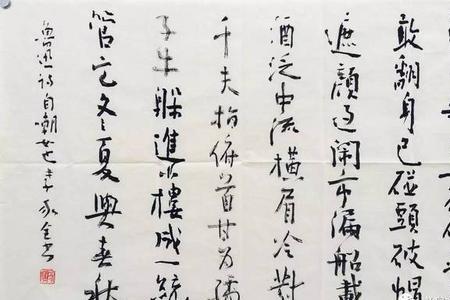 敢翻身已碰頭破帽
遮颜过闹市漏船載
酒泛中流横眉冷對
千夫指俯首甘为孺
子牛躲進小樓成一統
管它冬夏與春秋
魯迅诗自嘲